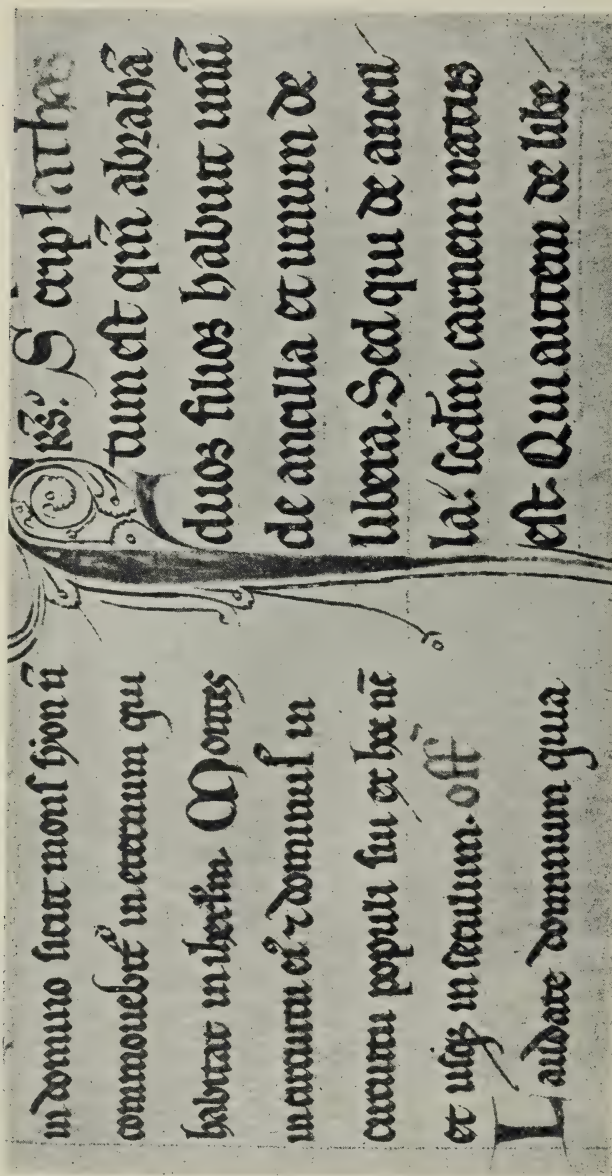 in domino sicut mons syon n̄
commouebit᷑ in eternum qui
habitat in iherlm̄. Montes
in circuitu eiꝰ ⁊ dominus in
circuitu populi sui ex hoc nūc
et usqꝫ in seculum. off̄
Laudate dominum quia
Frs̄. Scrip lathas
tum est qm̄ abrahā
duos filios habuit unū
de ancilla et unum de
libera. Sed qui de ancil
la: scdm̄ carnem natus
est. Qui autem de libe